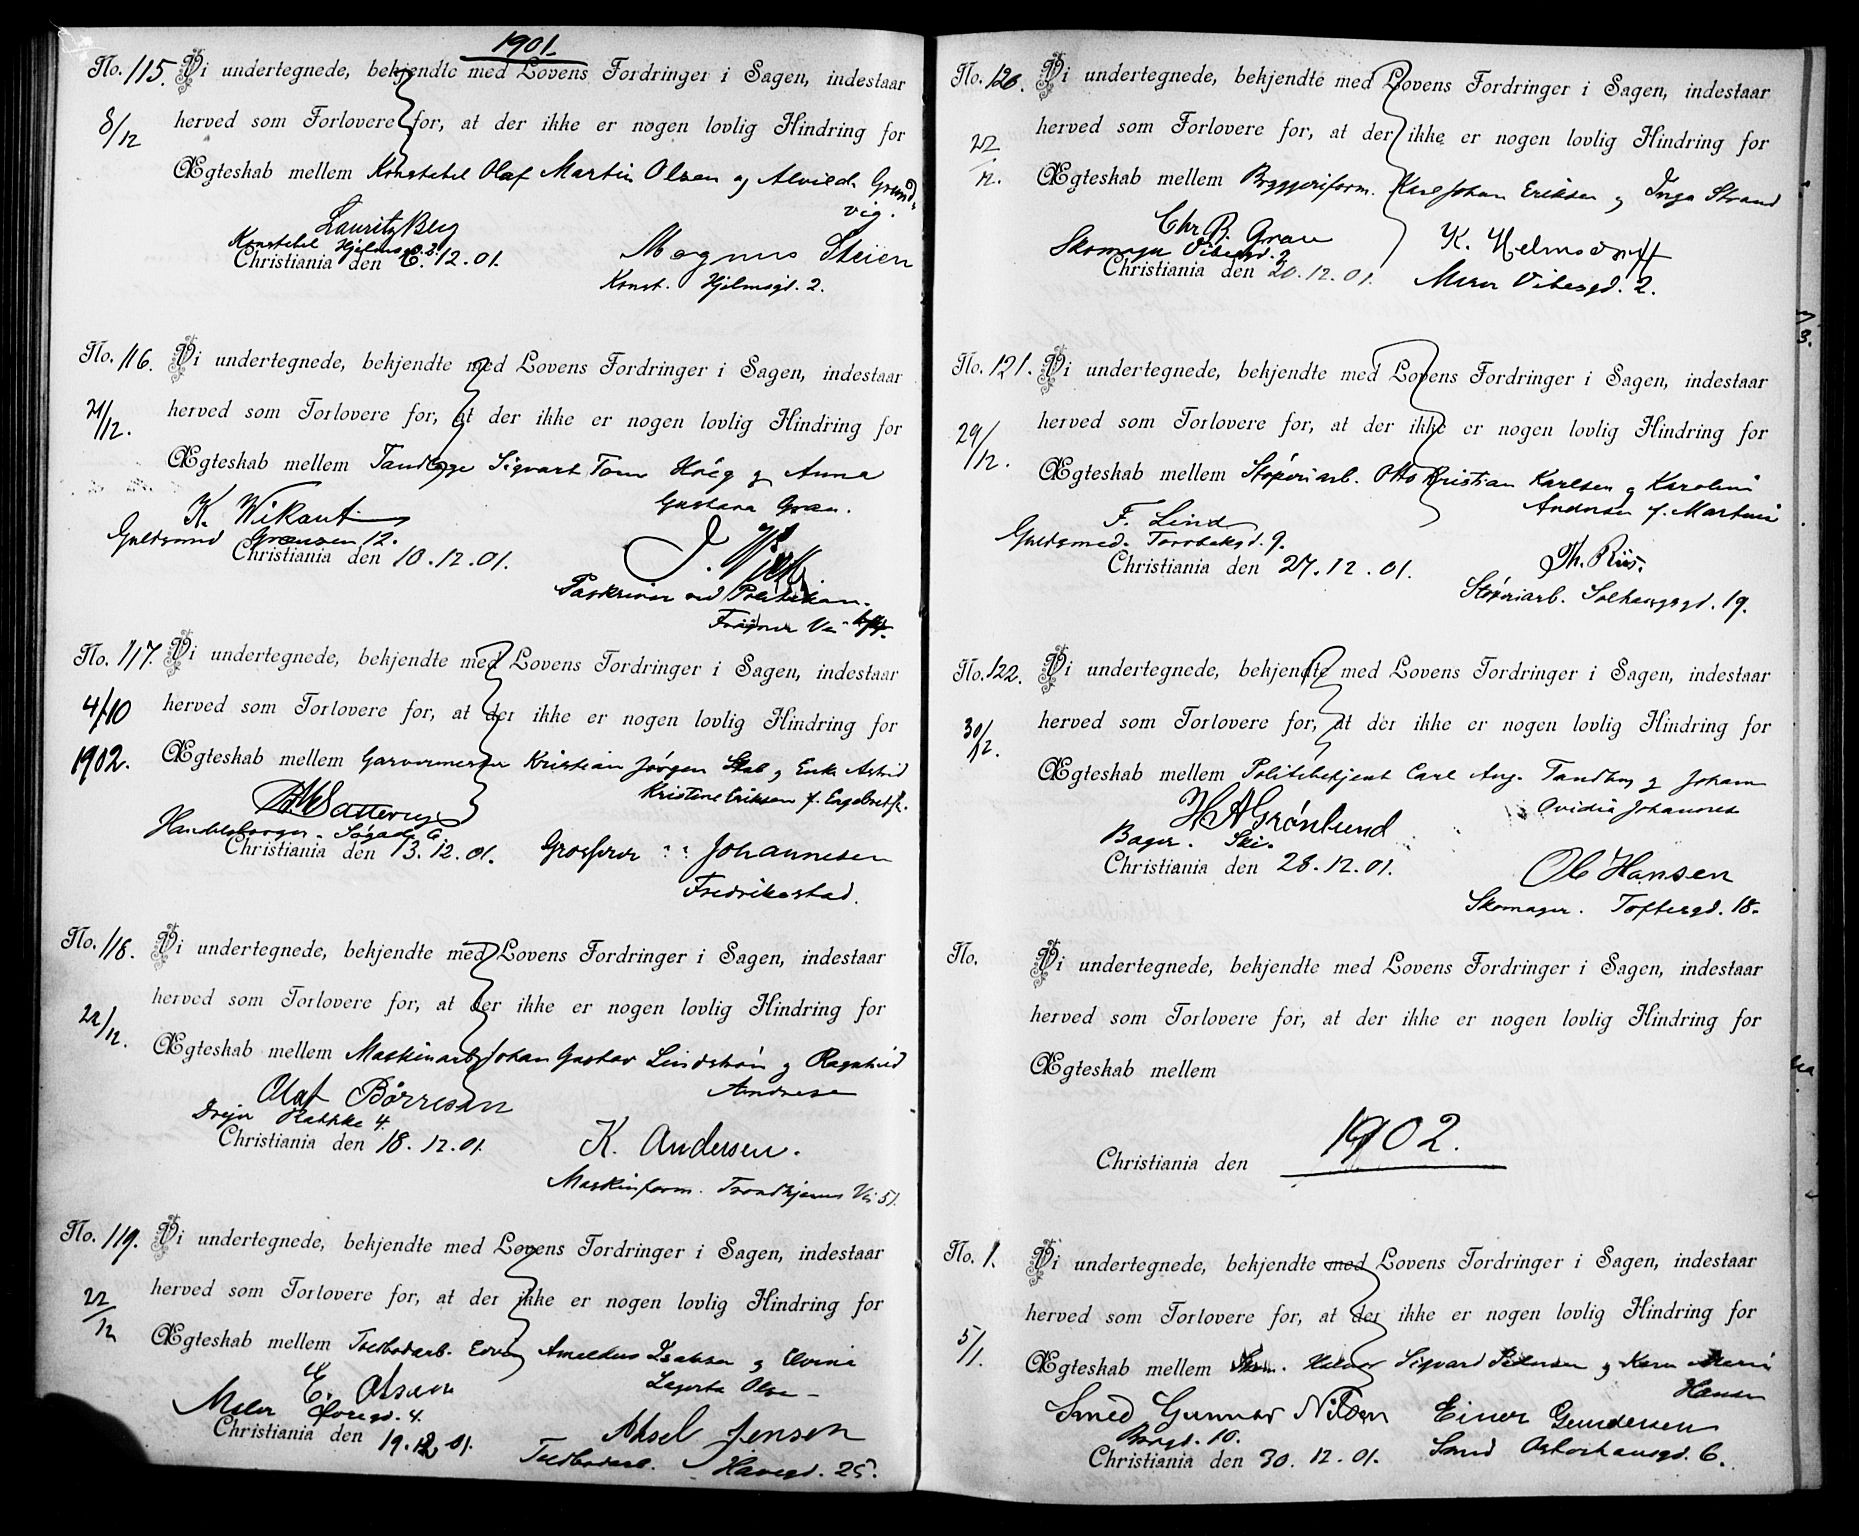 1901.
No. 115. Vi undertegnede, bekjendte med Lovens Fordringer i Sagen, indestaar
8/12 herved som Forlovere for, at der ikke er nogen lovlig Hindring for
Ægteskab mellem Konstabel Olaf Martin Olsen og Alvilde Grund-
vig.
Lauritz Berg
Konstabel Hjelmsgd. 2. Magnus Steien
Christiania den 6.12.01.
Konst. Hjelmsgd. 2.
No. 116. Vi undertegnede, bekjendte med Lovens Fordringer i Sagen, indestaar
21/12. herved som Forlovere for, at der ikke er nogen lovlig Hindring for
Ægteskab mellem Tandlæge Sigvart Høeg og Anna
K. Wikant Gustava Gran.
Guldsmed Grænsen 12.
Christiania den 10.12.01.
Passkriver ved
No. 117. Vi undertegnede, bekjendte med Lovens Fordringer i Sagen, indestaar
4/10 herved som Forlovere for, at der ikke er nogen lovlig Hindring for
1902. Ægteskab mellem Garvermester Kristian Jørgen og Enke Astrid
Kristine Eriksen f. Engebretsen.
Handelsborger. Søgade 6
Christiania den 13.12.01. Grosserer Johannesen
Fredrikstad.
No. 118. Vi undertegnede, bekjendte med Lovens Fordringer i Sagen, indestaar
22/12. herved som Forlovere for, at der ikke er nogen lovlig Hindring for
Ægteskab mellem Maskinarb. Johan Gustav Lindstrøm og Ragnhild
Olaf Børresen Andresen
Drejer 4.
Christiania den 18.12.01. K. Andersen.
Maskinform. Trondhjems Vei 51.
No. 119. Vi undertegnede, bekjendte med Lovens Fordringer i Sagen, indestaar
22/12 herved som Forlovere for, at der ikke er nogen lovlig Hindring for
Ægteskab mellem Trælbodarb. Amaldus Isaksen og Elvine
E. Olsen Lagerta Olsen
Maler 4.
Christiania den 19.12.01. Aksel Jensen
Havegd. 25.
No. 120. Vi undertegnede, bekjendte med Lovens Fordringer i Sagen, indestaar
22/12. herved som Forlovere for, at der ikke er nogen lovlig Hindring for
Ægteskab mellem Bryggeriform. Karl Johan Eriksen og Inga Strand
Chr. B. Grau K. Helmsdorff
Skomager Vibesgd. 2
Christiania den 20.12.01. Murer Vibesgd. 2.
No. 121. Vi undertegnede, bekjendte med Lovens Fordringer i Sagen, indestaar
29/12. herved som Forlovere for, at der ikke er nogen lovlig Hindring for
Ægteskab mellem Støperiarb. Otto Kristian Karlsen og Karoline
F. Lind Andersen f. Martinsen
Guldsmed. Torvbakgd. 9.
Christiania den 27.12.01. Th. Riis.
Støperiarb. Solhauggd. 19.
No. 122. Vi undertegnede, bekjendte med Lovens Fordringer i Sagen, indestaar
30/12. herved som Forlovere for, at der ikke er nogen lovlig Hindring for
Ægteskab mellem Politibetjent Carl Aug. Tandberg og Johanne
H A Grønlund Ovidia Johannes
Bager. Ski.
Christiania den 28.12.01. Ole Hansen
Skomager. Toftesgd. 18.
No. Vi undertegnede, bekjendte med Lovens Fordringer i Sagen, indestaar
herved som Forlovere for, at der ikke er nogen lovlig Hindring for
Ægteskab mellem
1902.
Christiania den
No. 1. Vi undertegnede, bekjendte med Lovens Fordringer i Sagen, indestaar
5/1. herved som Forlovere for, at der ikke er nogen lovlig Hindring for
Ægteskab mellem Halvor Sigvard Petersen og Karen Marie
Hansen
Smed Gunnar Nilsen Einer Gundersen
Borggd. 10.
Christiania den 30.12.01. Smed Osterhausgd. 6.